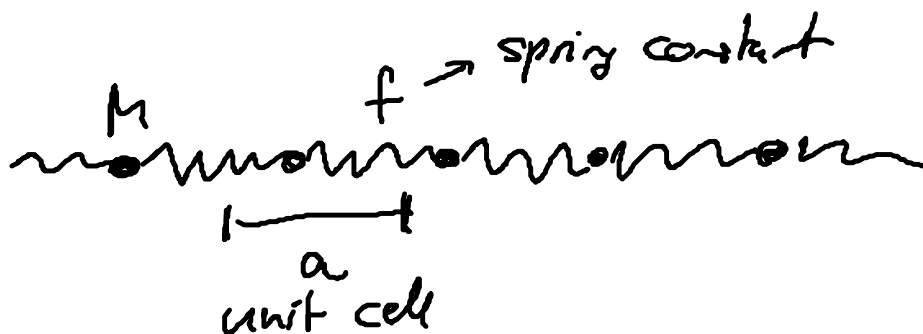 f → spring constant
M
a
unit cell